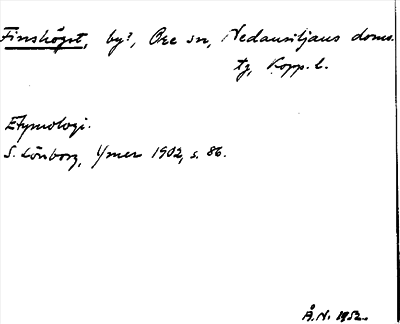 Finshögst, by?, Ore sn, Nedansiljans doms.
tg, Kopp. l.
Etymologi.
S. Lönborg, Ymer 1902, s. 86.
Å.N. 1952.